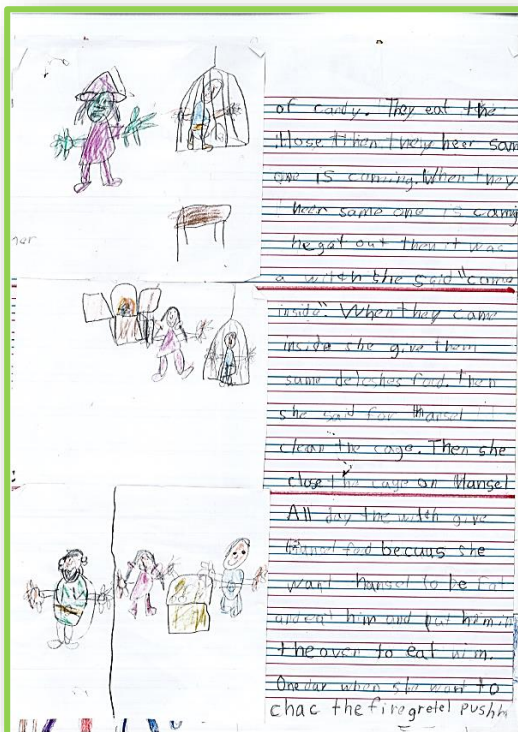 of candy. They eat the
Hose. then they heer som
one is coming. When they
heer same one is caming
he gat out then it was
a witch she said "come
inside". When they came
inside she give them
same deloshes food. Then
she said for Hansel
clean the cage. Then she
close the cage on Hansel
All day the witch give
Hansel food becuus she
want hansel to be fat
and eat him and put hem in
the over to eat him.
One day when she want to
chac the fire gretel pushh